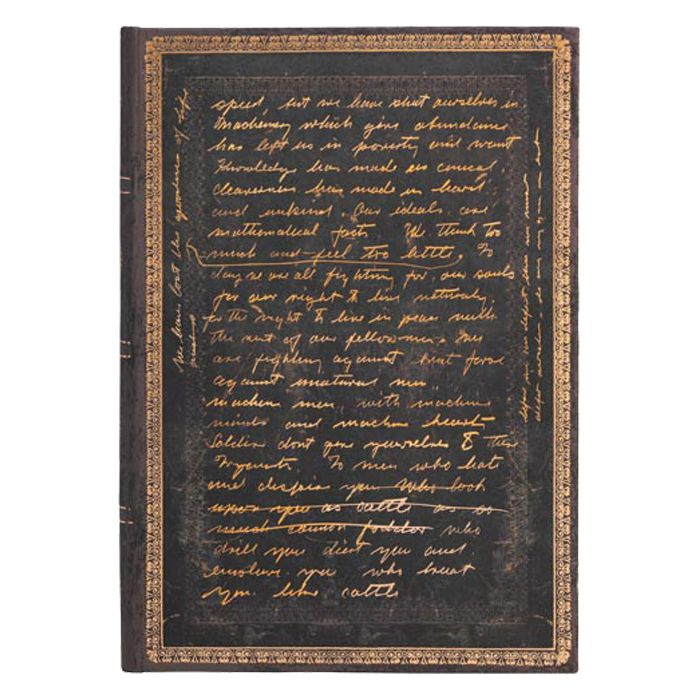 speed, but we have shut ourselves in
Machinery which give abundance
has left us in poverty and want
Knowledge has made us cynical
cleverness has made us hard
and unkind. Our ideals are
mathematical facts We think too
much and feel too little. To
day we are all fighting for our souls
for our right to live naturally,
for the right to live in peace with
the rest of our fellowmen. We
are fighting against brut force
against unatural men
machine men, with machine
minds and machine hearts
Soldiers dont give yourselves to these
To men who hate
and despise you Who look
upon you as cattle as so
much cannon fodder who
drill you diet you and
enslave you who treat
you like cattle
we have lost the goodness of life